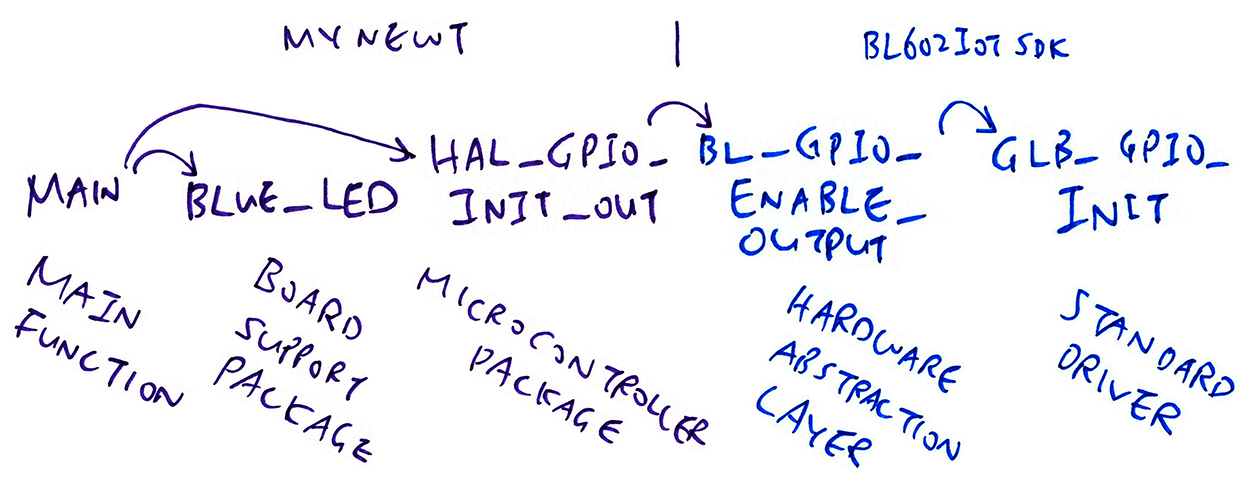 MYNEWT | BL602 IOT SDK
MAIN
BLUE_LED
HAL_GPIO_
INIT_OUT
BL_GPIO_
ENABLE_
OUTPUT
GLB_GPIO_
INIT
MAIN
FUNCTION
BOARD
SUPPORT
PACKAGE
MICROCONTROLLER
PACKAGE
HARDWARE
ABSTRACTION
LAYER
STANDARD
DRIVER